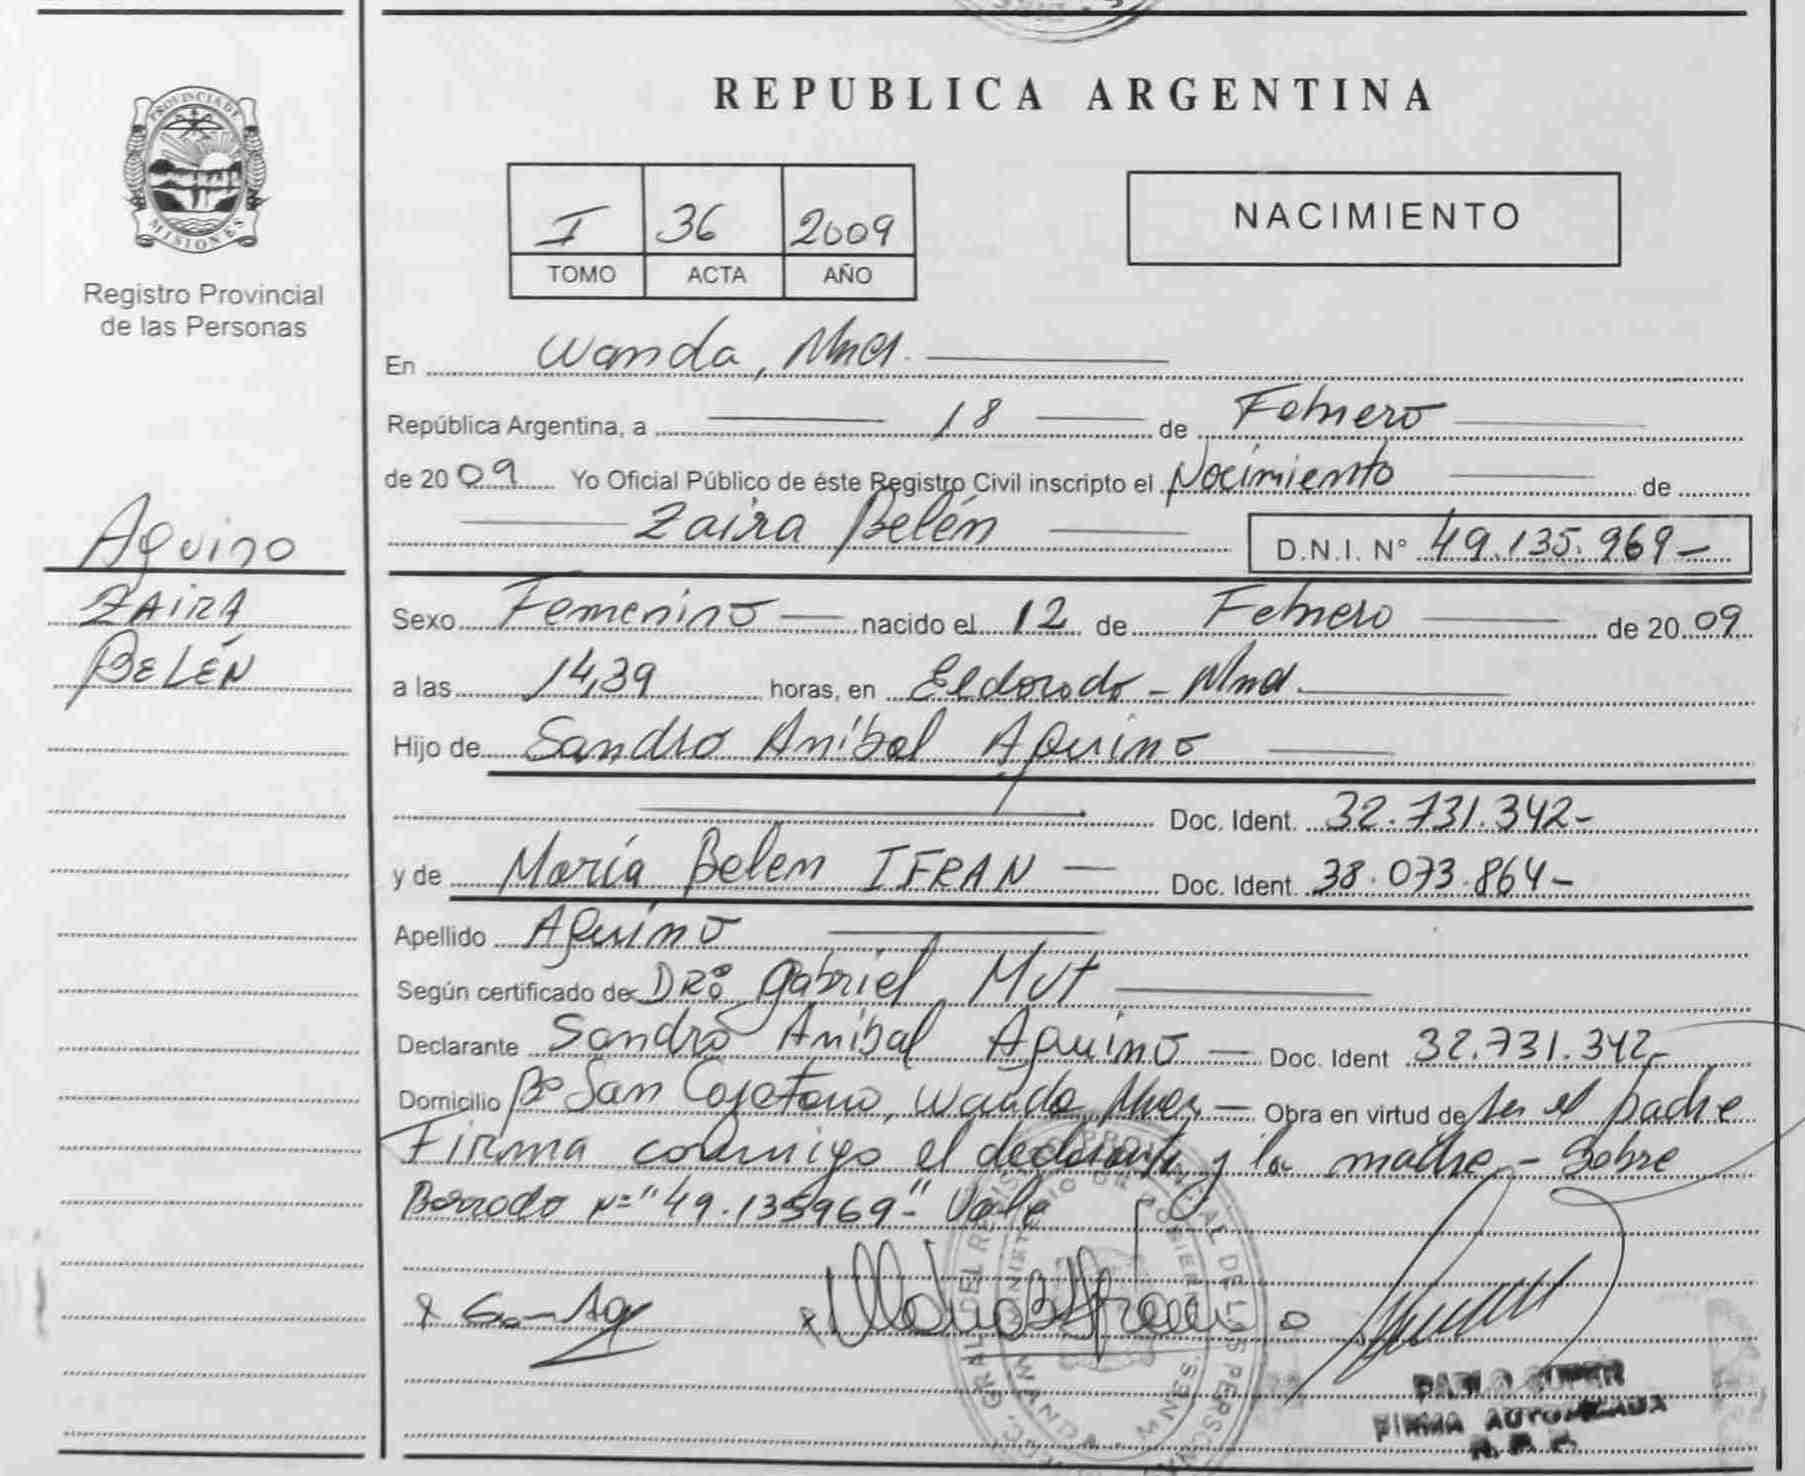 REPUBLICA ARGENTINA
PROVINCIA DE
MISIONES
Registro Provincial
de las Personas
I 36 2009
TOMO ACTA AÑO
NACIMIENTO
En Wanda, Mnes.
República Argentina, a 18 de Febrero
de 2009 Yo Oficial Público de éste Registro Civil inscripto el Nacimiento de
Zaira Belén D.N.I. N° 49.135.969-
Aquino
ZAIRA
BELÉN
Sexo Femenino nacido el 12 de Febrero de 2009
a las 14,39 horas, en Eldorado - Mnes.
Hijo de Sandro Aníbal Aquino
Doc. Ident. 32.731.342-
y de María Belen IFRAN Doc. Ident. 38.073.864-
Apellido Aquino
Según certificado de Dr. Gabriel Mut
Declarante Sandro Anibal Aquino Doc. Ident 32.731.342-
Domicilio Bº San Cayetano, Wanda Mnes - Obra en virtud de ser el padre
Firma conmigo el declarante y la madre - Sobre
Borrado Nº "49.135969-" Vale
FIRMA AUTORIZADA